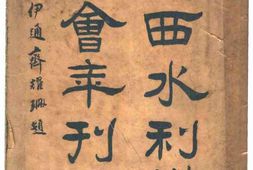 西水利
會年刊
伊通齊耀珊題